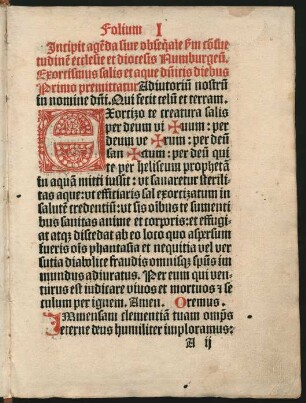 Folium I
Incipit agēda siue obseq̄ale ẜm cōsue
tudinē ecclesie et diocesis Numburgeñ.
Exorcismus salis et aque dñicis diebus
Primo premittatur Adiutoriū nostrū
in nomine dñi. Qui fecit celū et terram.
Exorcizo te creatura salis
per deum vi ✠ uum: per
deum ve ✠ rum: per deū
san ✠ ctum: per deū qui
te per heliseum prophetā
in aquā mitti iussit: vt sanaretur sterili
tas aque: vt efficiaris sal exorcizatum in
salutē credentiū: vt sis oībus te sumenti
bus sanitas anime et corporis: et effugi
at atqȝ discedat ab eo loco quo aspersum
fueris oīs phantasia et nequitia vel ver
sutia diabolice fraudis omnisqȝ spūs im
mundus adiuratus. Per eum qui ven
turus est iudicare viuos et mortuos ⁊ se
culum per ignem. Amen. Oremus.
Immensam clementiā tuam omp̄s
eterne deus humiliter imploramus:
A ij